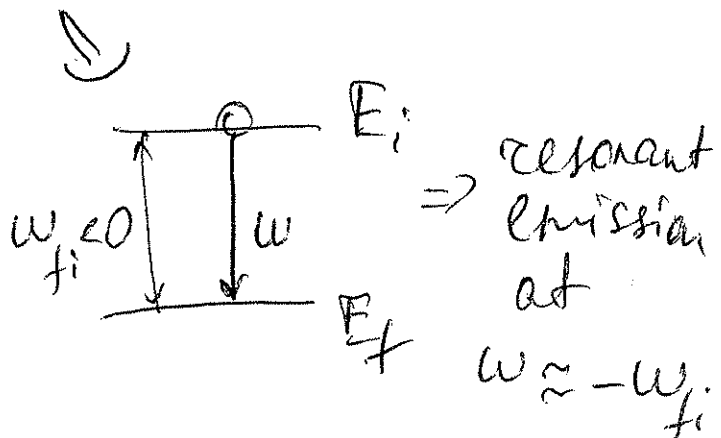 E_i
ω_fi<0 ω
E_f
=> resonant
emission
at
ω ≃ -ω_fi